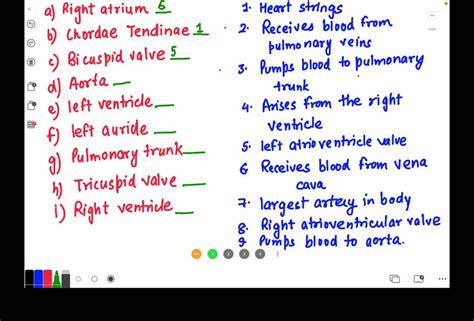 a) Right atrium 6
b) Chordae Tendinae 1
c) Bicuspid valve 5
d) Aorta __
e) left ventricle __
f) left auride __
g) Pulmonary trunk __
h) Tricuspid valve __
i) Right ventricle __
1. Heart strings
2. Receives blood from
pulmonary veins
3. Pumps blood to pulmonary
trunk
4. Arises from the right
ventricle
5. left atrioventricle valve
6 Receives blood from vena
cava
7. largest artery in body
8. Right atrioventricular valve
9. Pumps blood to aorta.